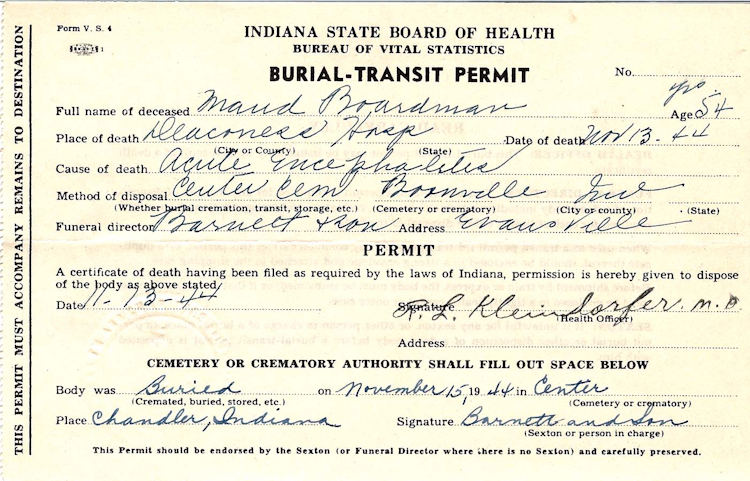 Form V. S. 4
INDIANA STATE BOARD OF HEALTH
BUREAU OF VITAL STATISTICS
BURIAL-TRANSIT PERMIT
No.
Full name of deceased Maud Boardman Age 54 yrs
Place of death Deaconess Hosp Date of death Nov 13-44
(City or County) (State)
Cause of death Acute Encephalites
Method of disposal Center Cem Boonville Ind
(Whether burial cremation, transit, storage, etc.) (Cemetery or crematory) (City or county) (State)
Funeral director Barnett & Son Address Evansville
PERMIT
A certificate of death having been filed as required by the laws of Indiana, permission is hereby given to dispose
of the body as above stated
Date 11-13-44 Signature P. L. Kleindorfer. M.D
(Health Officer)
Address
CEMETERY OR CREMATORY AUTHORITY SHALL FILL OUT SPACE BELOW
Body was Buried on November 15, 1944 in Center
(Cremated, buried, stored, etc.) (Cemetery or crematory)
Place Chandler, Indiana Signature Barnett and Son
(Sexton or person in charge)
This Permit should be endorsed by the Sexton (or Funeral Director where there is no Sexton) and carefully preserved.
THIS PERMIT MUST ACCOMPANY REMAINS TO DESTINATION